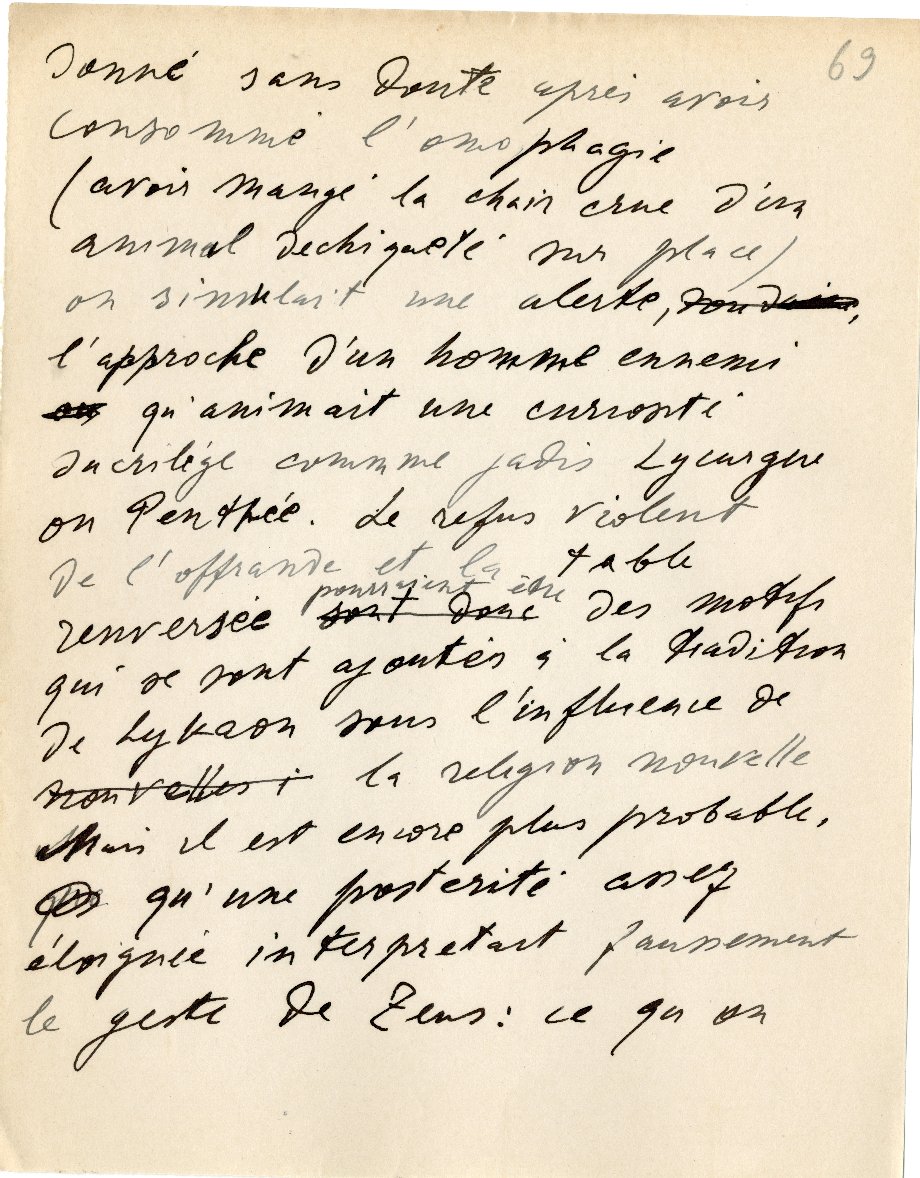 69
donné sans doute après avoir
consommé l'omophagie
(avoir mangé la chair crue d'un
animal dechiqueté sur place)
on simulait une alerte, soudaine,
l'approche d'un homme ennemi
ou qu'animait une curiosité
sacrilège comme jadis Lycurgue
ou Penthée. Le refus violent
de l'offrande et la table
pourraient être
renversée sont donc des motifs
qui se sont ajoutés à la tradition
de Lykaon sous l'influence de
nouvelles i la religion nouvelle
Mais il est encore plus probable,
qu'une posterité assez
éloignée interpretait faussement
le geste de Zeus: ce qu'on